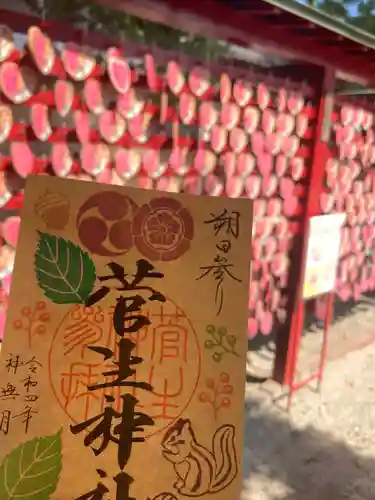 朔日参り
菅生神社
参拝
令和四年
神無月